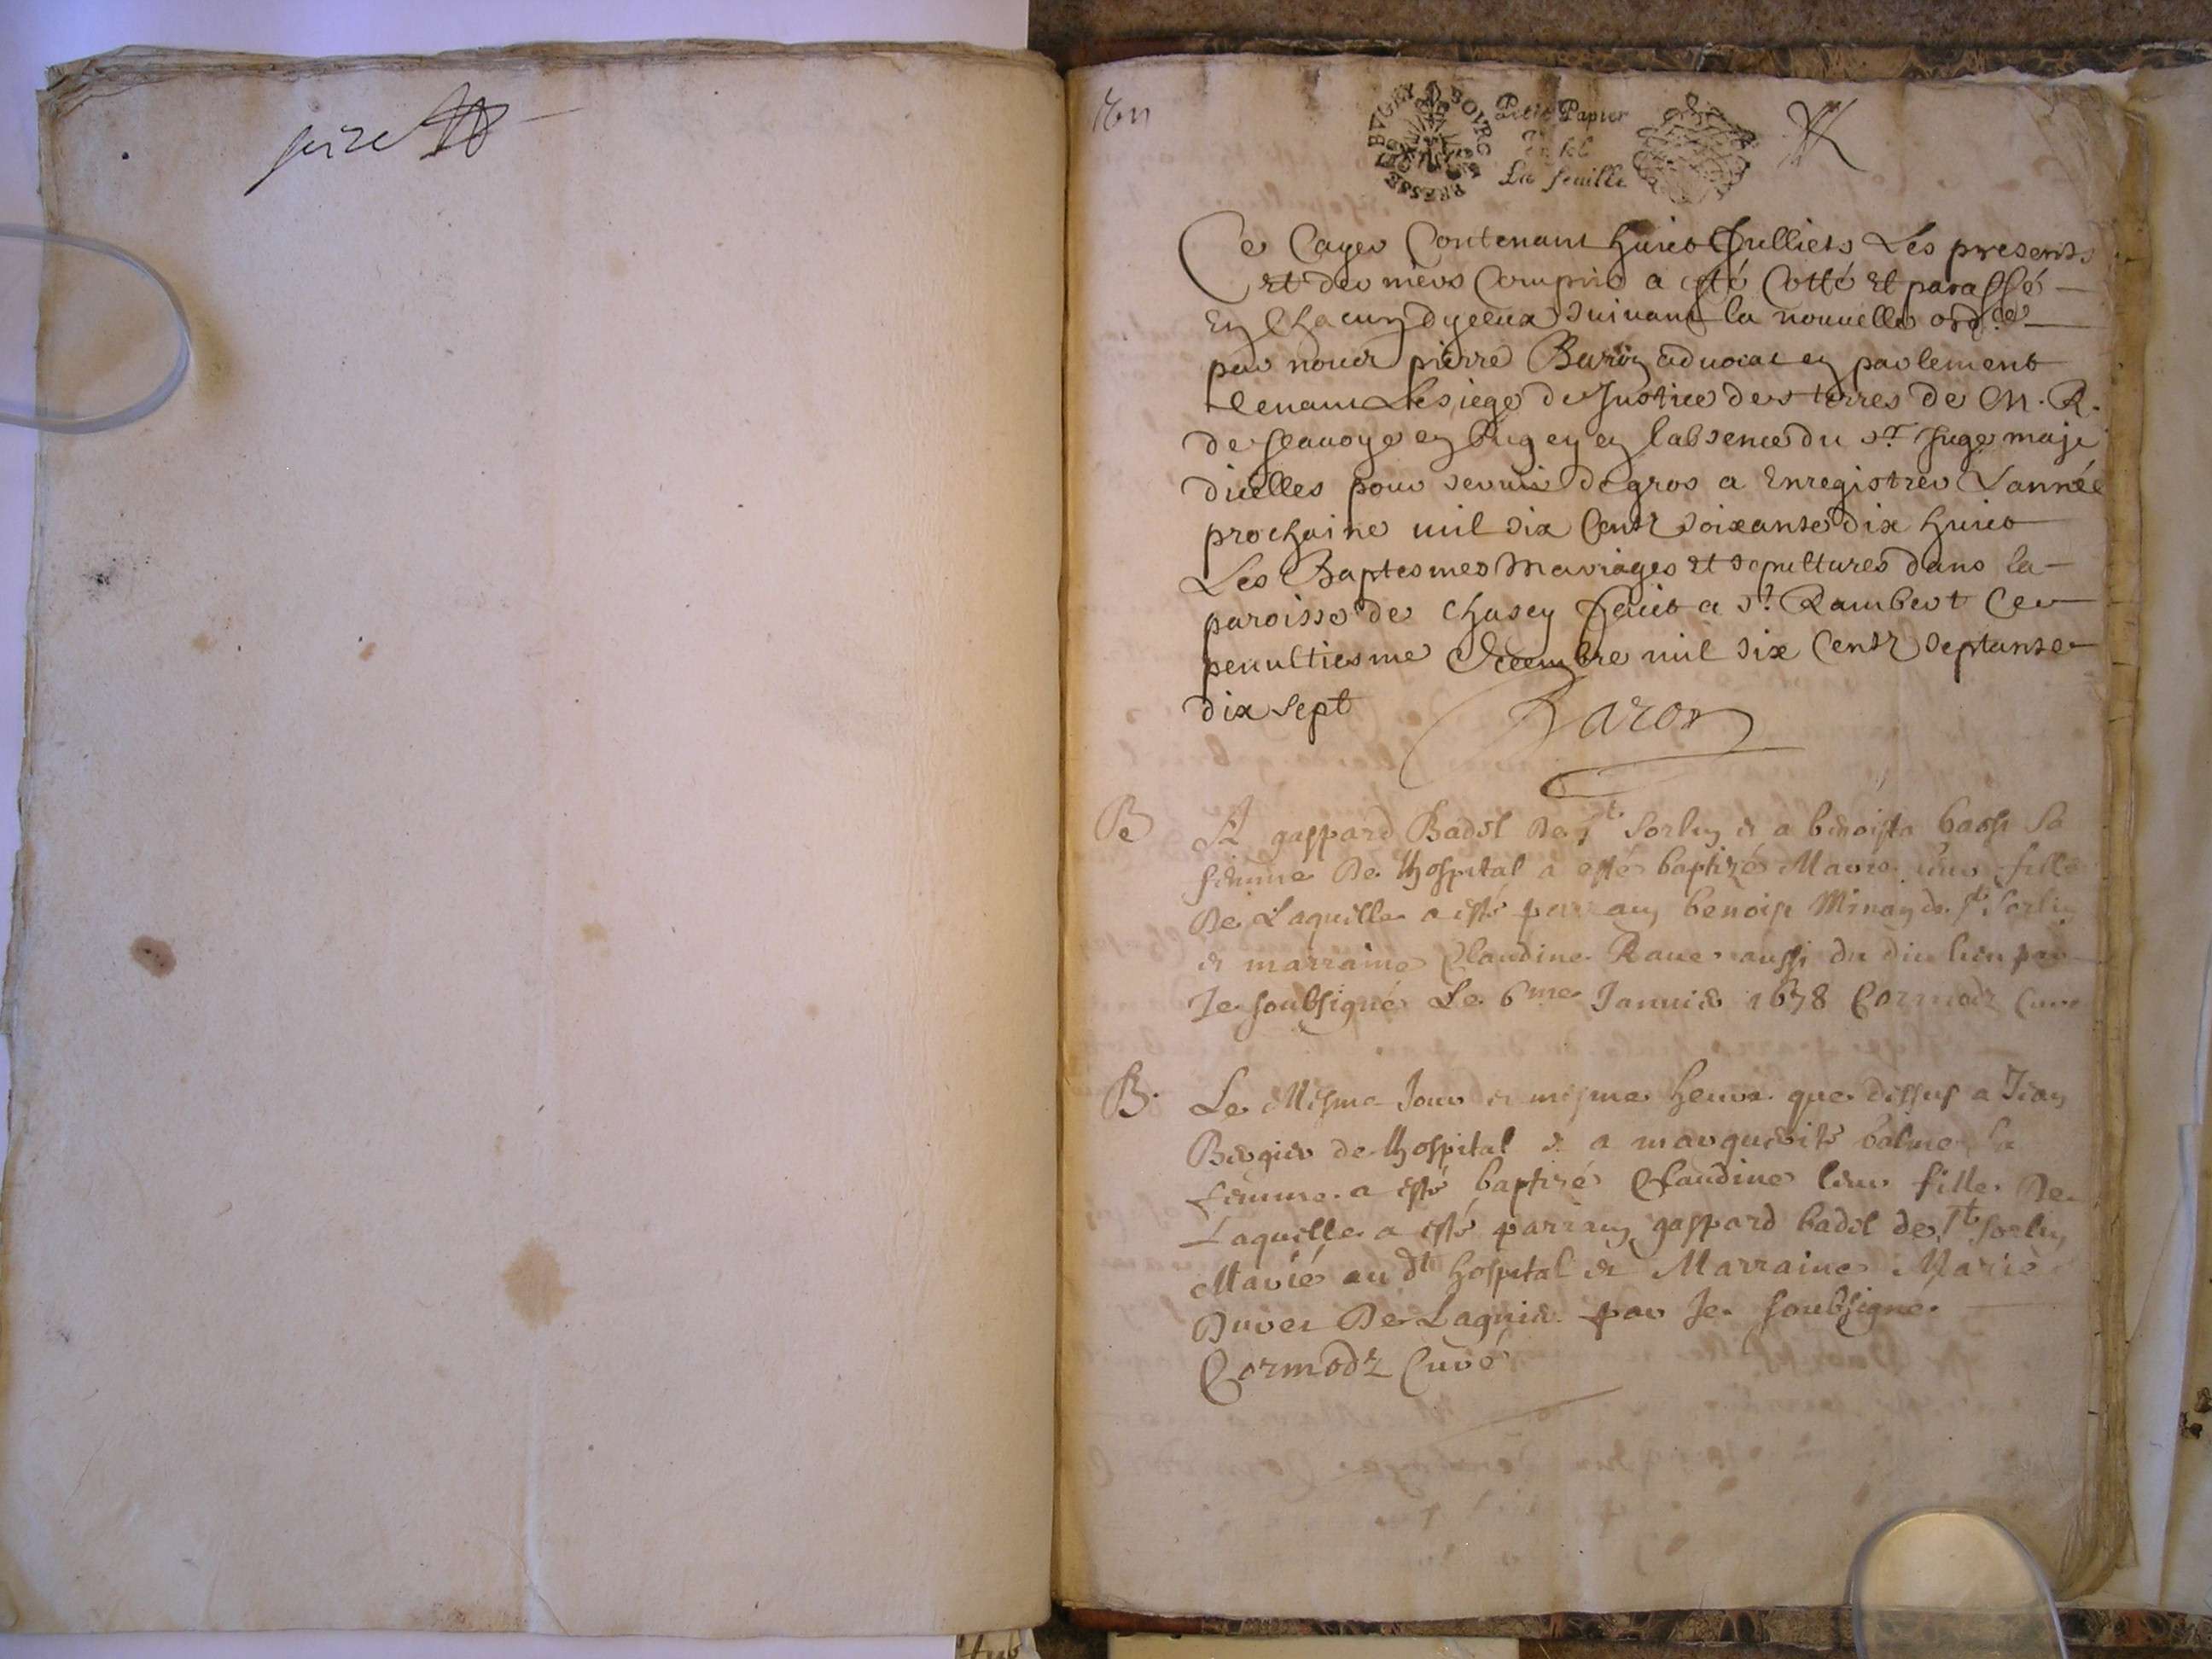 seize
Un
BVGEY BOVRG BRESSE
Petit Papier
Un sol
La feuille
Ce Cayer Contenant huict feulliets Les presents
et derniers Compris a esté Cotté et paraffé
En Chacun dyceux suivant la nouvelle ordce
par nous pierre Baron advocat en parlement
tenant Le siege de Justice des terres de M. R.
de Seavoye en Bugey en labsence du sr Juge maje
dicelles pour servir de gros a Enregistrer Lannée
prochaine mil six Centz soixante dix huict
Les Baptesmes Mariages et sepultures dans la
paroisse de Chasey faict a St Rambert Ce
penultiesme decembre mil six Centz septante
dix sept
Baron
B
A gaspard Badel De St Sorlin et a benoista bassi sa
femme De Lhospital a esté baptizé Marie leur fille
De Laquelle a esté parrain benoist Minan de St Sorlin
et marraine Claudine Rave aussi du dit lieu par
Je soubsigné Le 6me Janvier 1678 Cormodz Curé
B.
Le Mesme Jour et mesme heure que dessus a Jean
Bergier de Lhospital et a marguerite balme sa
femme a esté baptizé Claudine leur fille De
Laquelle a esté parrain gaspard badel de St Sorlin
Marié au dt hospital et Marraine Marie
Buvet De Lagnieu par Je soubsigné
Cormodz Curé